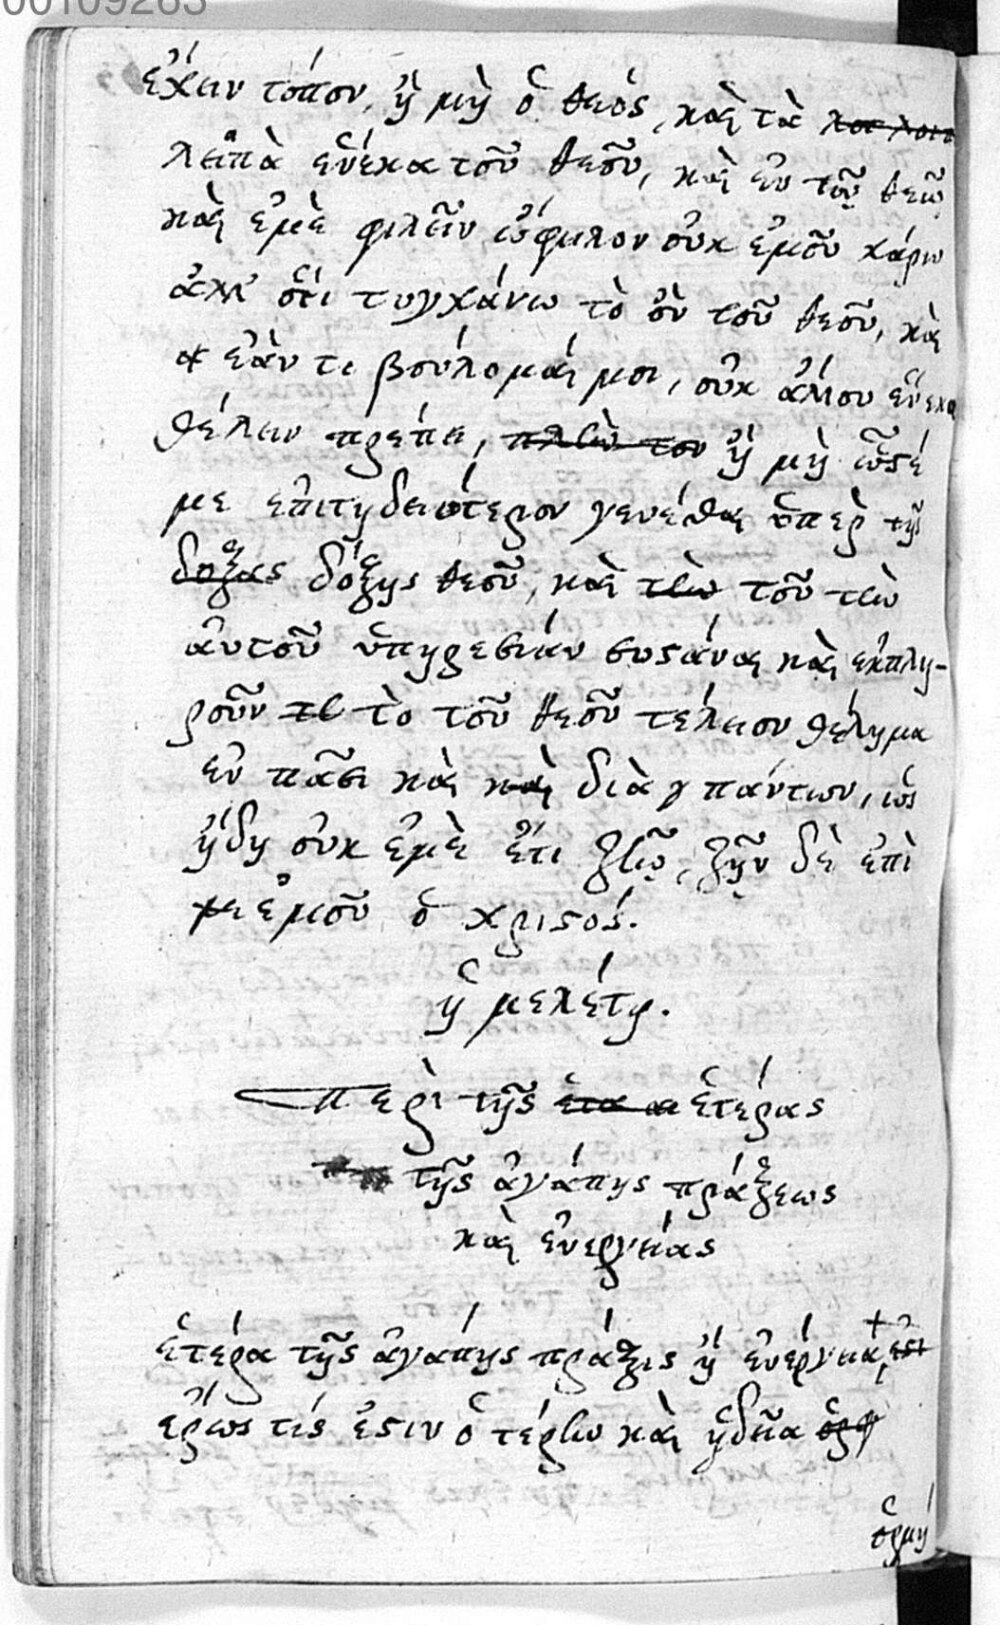 00109283
ἔχειν τόπον, ἢ μὴ ὁ θεός, καὶ τὰ
λειπὰ εἵνεκα τοῦ θεοῦ, καὶ ἐν τῷ θεῷ
καὶ ἐμὲ φιλεῖν ὤφειλον οὐκ ἐμοῦ χάριν
ἀλλ' ὅτι τυγχάνω τὸ ὂν τοῦ θεοῦ, καὶ
ἐάν τι βούλομαί μοι, οὐκ ἄλλου εἵνεκα
θέλειν πρέπει, πλὴν τοῦ ἢ μὴ ὥστέ
με ἐπιτηδειότερον γενέσθαι ὑπὲρ τῆς
δόξας δόξης θεοῦ, καὶ τὴν τοῦ τὴν
αὐτοῦ ὑπηρεσίαν συστάναι καὶ ἐκπλη-
ροῦν τὸ τοῦ θεοῦ τέλειον θέλημα
ἐν πᾶσι καὶ καὶ διὰ πάντων, ὡς
ἤδη οὐκ ἐμὲ ἔτι ζῆν δὲ ἐπὶ
ἐμοῦ ὁ χριστός.
ἡ μελέτη.
Περὶ τῆς ἑτέρας
τῆς ἀγάπης πράξεως
καὶ ἐνεργείας
ἑτέρα τῆς ἀγάπης πρᾶξις ἢ ἐνέργεια, ἐστι
ἔρως τίς ἐστιν ὁ τέρην καὶ ἡδεῖα
ὁρμή